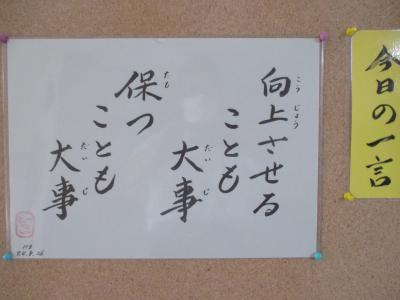 今日の一言
向上させる
ことも
大事
保つ
ことも
大事
こうじょう
だいじ
たも
だいじ